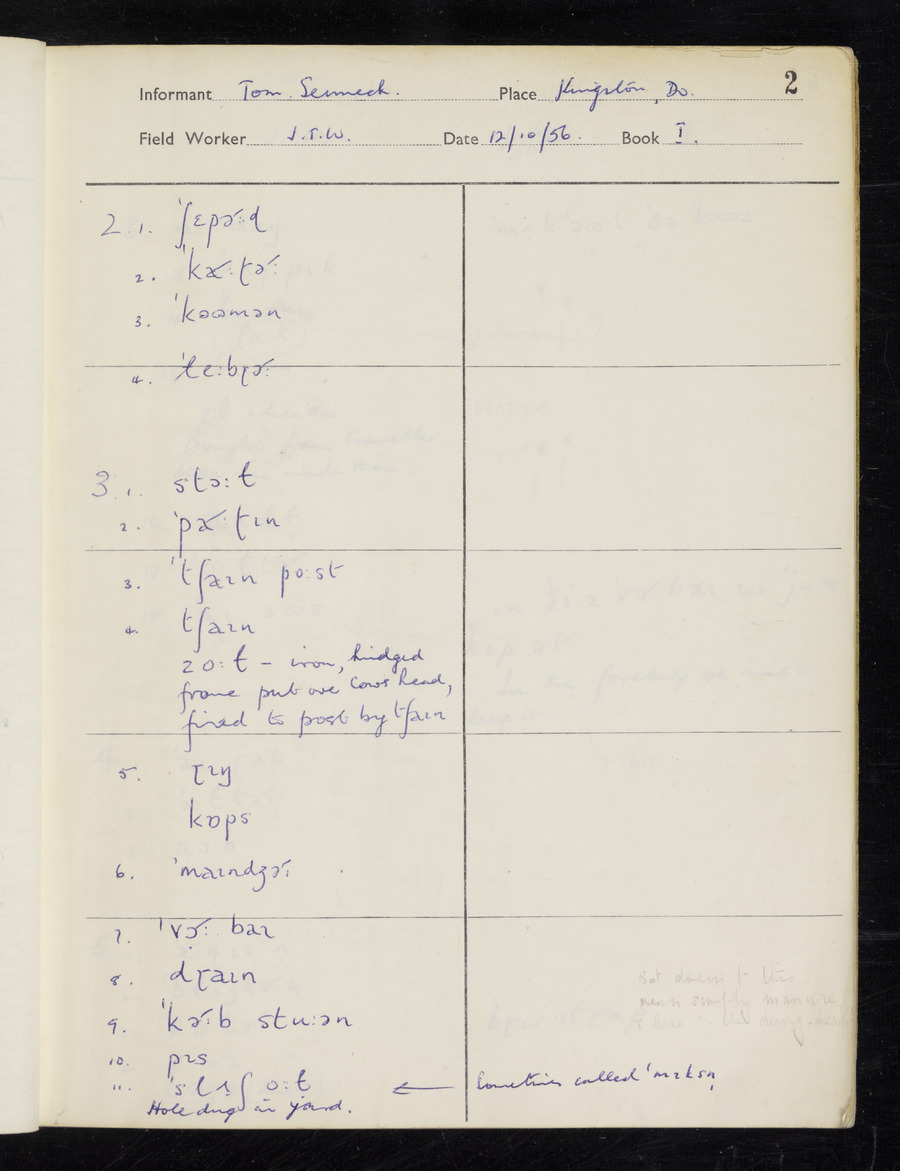 2
Informant Tom. Place Kingston, Do.
Field Worker J.T.W. Date 12/10/56. Book I.
2. 1. ˈʃɛpəʴːd
2. ˈkæʴːtəʴː
3. ˈkəʊmən
4. ˈleːbɽəʴː
3. 1. stɔːɫ
2. ˈpæʴːtɪn
3. ˈtʃaɪn poːst
4. tʃaɪn
zoːɫ – iron, hindged
frame put over cows head,
fixed to post by tʃaɪn
5. ɽɪŋ
kɒps
6. ˈmaɪndʒəʴː
7. ˈvɔʴː baɪ
8. dɽaɪn
9. ˈkəʴːb stuːən
10. pɪs
11. ˈslʌʃ oːɫ ← Sometimes called ˈmɪksn̩
Hole dug in yard.
But doesn't this
mean simply manure
here is the dung-